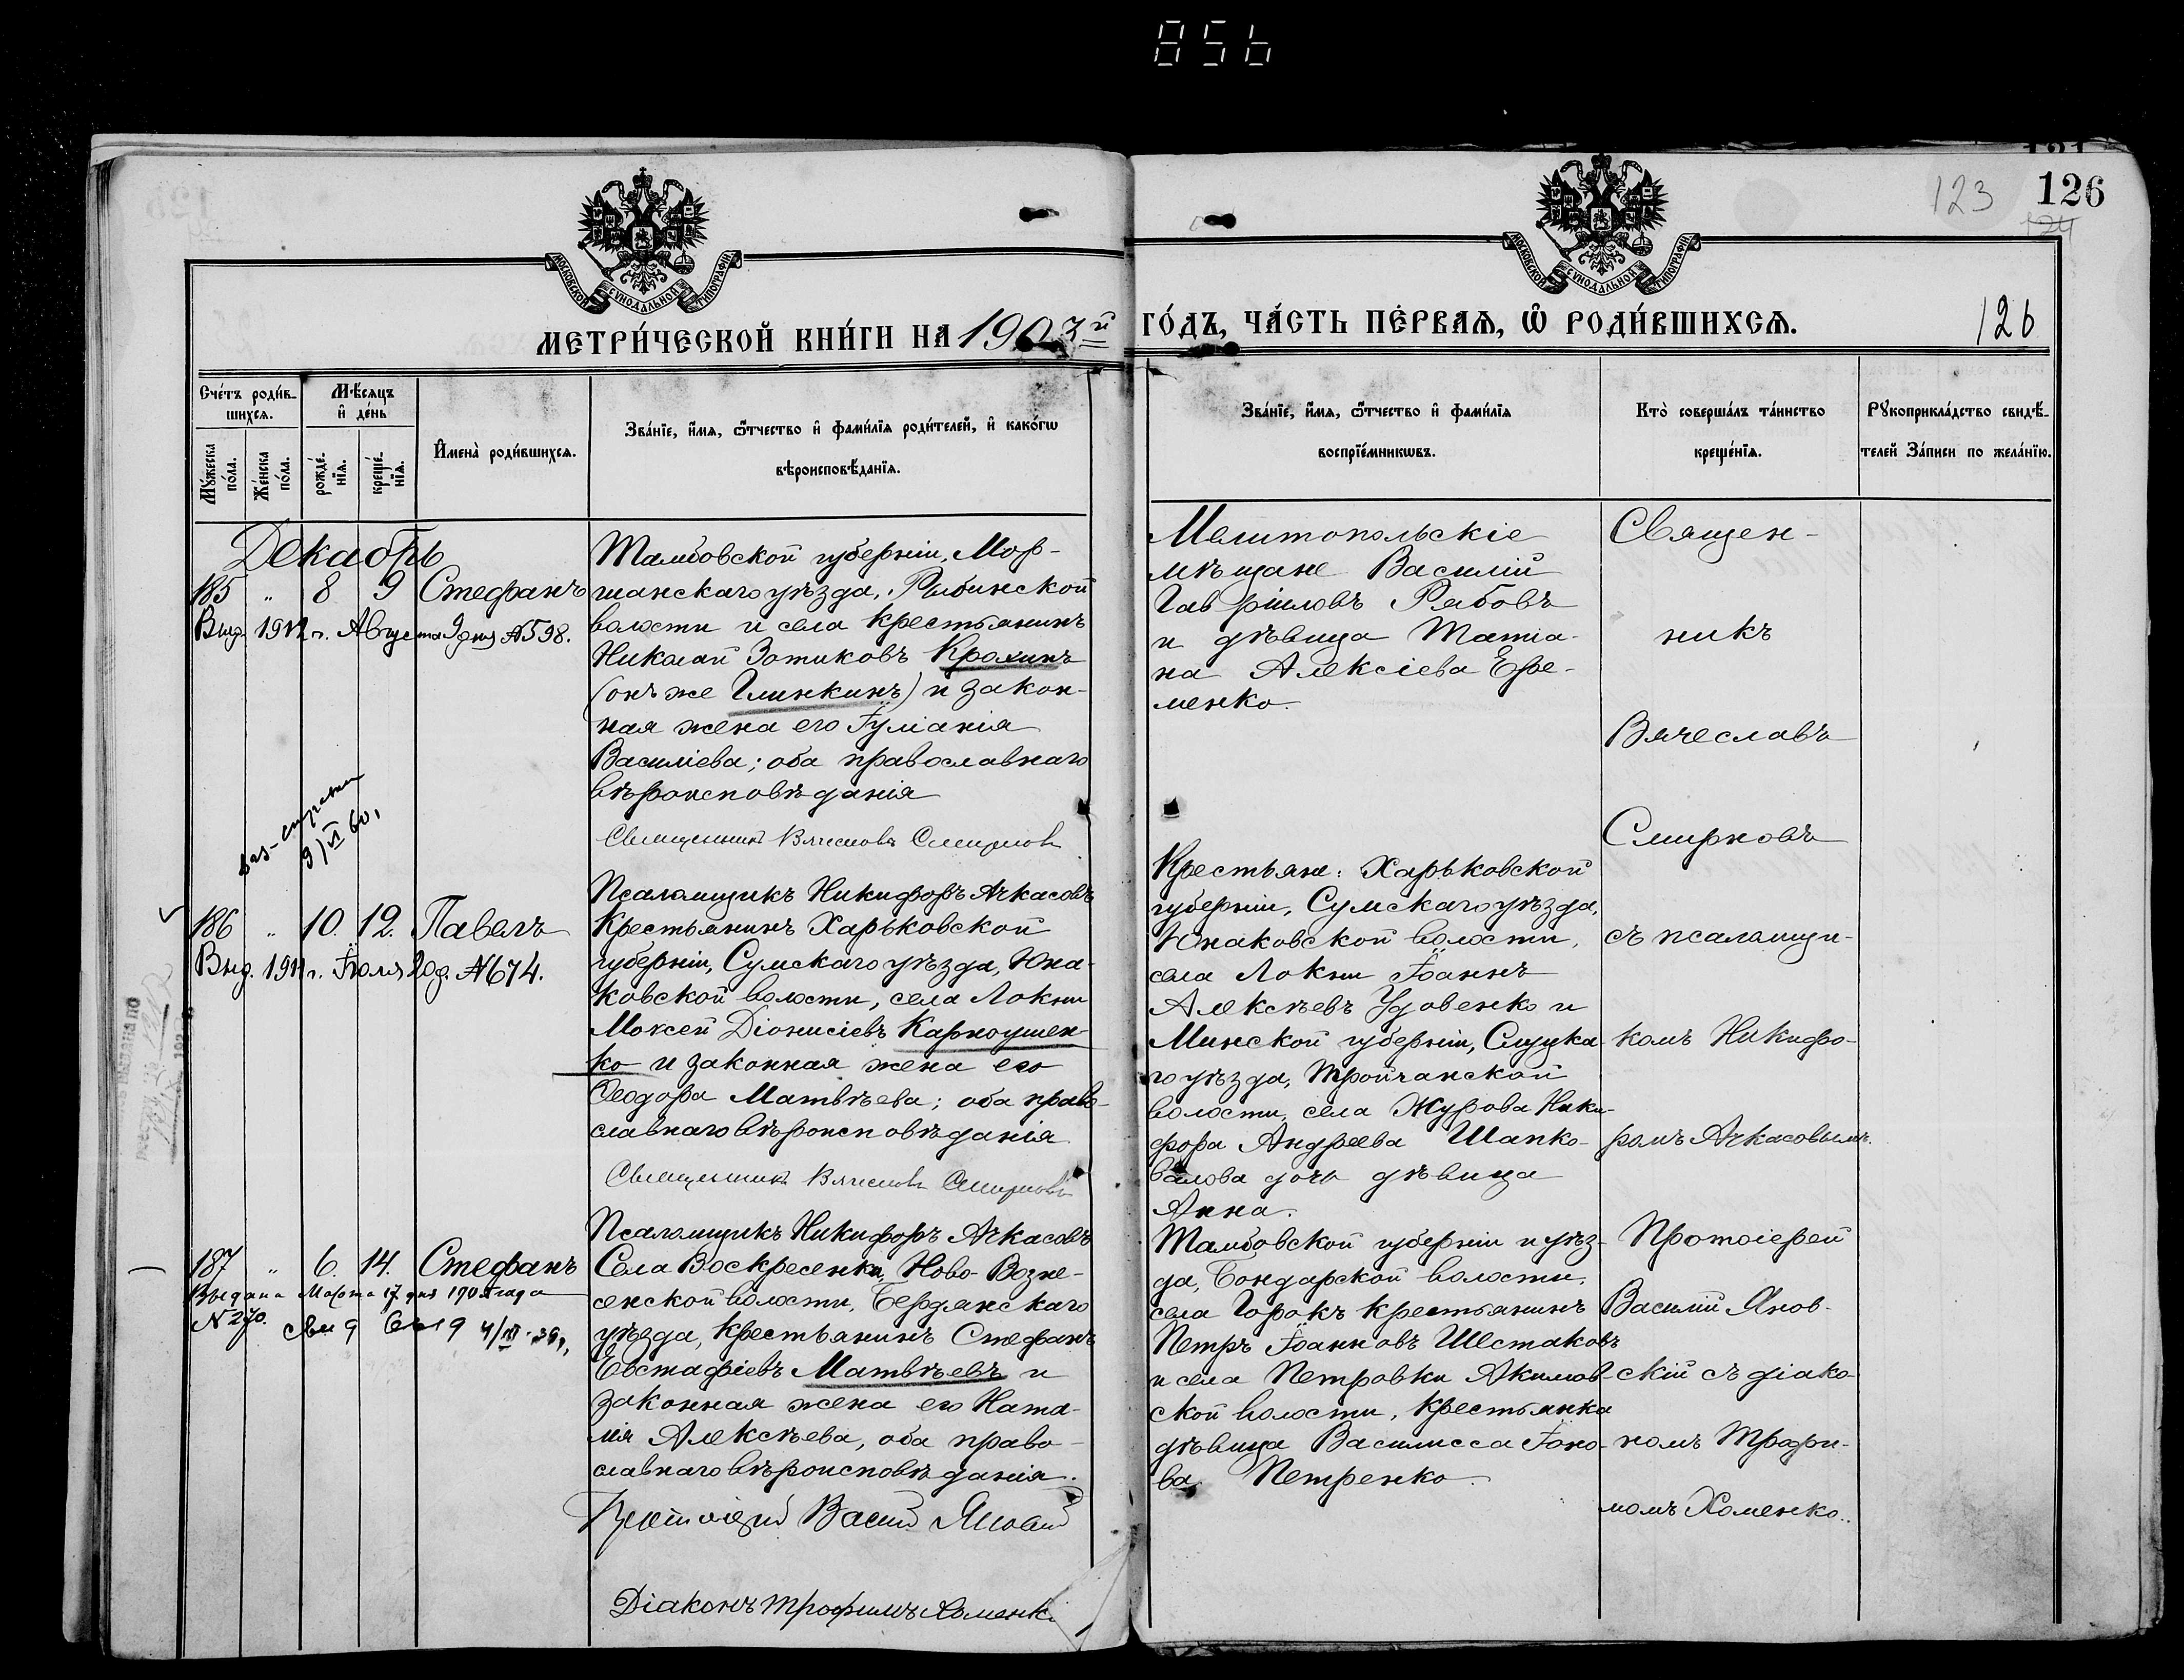 856
123 126
124
МОСКОВСКОЙ СУНОДАЛЬНОЙ ТИПОГРАФІИ
МОСКОВСКОЙ СУНОДАЛЬНОЙ ТИПОГРАФІИ
МЕТРИ́ЧЕСКОЙ КНИ́ГИ НА 1903й ГО́ДЪ, ЧА́СТЬ ПЕ́РВАЯ, Ѡ РОДИ́ВШИХСЯ.
126
Сче́тъ роди́в-
шихся.
Му́жеска по́ла.
Же́нска по́ла.
Мѣ́сяцъ
и де́нь
рожде́-
нія.
креще́-
нія.
Имена̀ роди́вшихся.
Зва́ніе, и́мя, ѻ́тчество и фами́лія роди́телей, и како́гѡ
вѣроисповѣ́данія.
Зва́ніе, и́мя, ѻ́тчество и фами́лія
воспріе́мникѡвъ.
Кто̀ соверша́лъ та́инство
креще́нія.
Рꙋкоприкла́дство свидѣ́-
телей За́писи по жела́нію.
Декабрь
185 " 8 9 Стефанъ
Выд. 1912 г. Августа 9 дня №598.
Тамбовской губерніи, Мор-
шанскаго уѣзда, Рыбинской
волости и села крестьянинъ
Николай Зотиковъ Крохинъ
(онъ же Глинкинъ) и закон-
ная жена его Іуліанія
Василіева; оба православнаго
вѣроисповѣданія
Священникъ Вячеславъ Смирновъ
Псаломщикъ Никифоръ Ачкасовъ
Мелитопольскіе
мѣщане Василій
Гавріиловъ Рябовъ
и дѣвица Татіа-
на Алексіева Ефе-
менко.
Священ-
никъ
Вячеславъ
Смирновъ
съ псаломщи-
комъ Никифо-
ромъ Ачкасовымъ.
9/VI 60,
186 " 10. 12. Павелъ
Выд. 1911 г. Іюля 20 д. №674.
Крестьянинъ Харьковской
губерніи, Сумскаго уѣзда, Юна-
ковской волости, села Локни
Моѵсей Діонисіевъ Карпоушен-
ко и законная жена его
Ѳеодора Матвѣева; оба право-
славнаго вѣроисповѣданія
Священникъ Вячеславъ Смирновъ
Псаломщикъ Никифоръ Ачкасовъ
Крестьяне: Харьковской
губерніи, Сумскаго уѣзда,
Юнаковской волости,
села Локни Іоаннъ
Алексѣевъ Удовенко и
Минской губерніи, Слуцка-
го уѣзда, Тройчанской
волости, села Журова Ники-
фора Андреева Шапко-
валова дочь дѣвица
Анна.
187 " 6. 14. Стефанъ
Выдана Марта 17 дня 190 года
N 270.
Села Воскресенки, Ново-Возне-
сенской волости, Бердянскаго
уѣзда, крестьянинъ Стефанъ
Евстафіевъ Матвѣевъ и
законная жена его Ната-
лія Алексѣева, оба право-
славнаго вѣроисповѣданія.
Протоіерей Василій Яновскій
Діаконъ Трофимъ Хоменко
Тамбовской губерніи и уѣз-
да, Бондарской волости,
села Горокъ крестьянинъ
Петръ Іоанновъ Шестаковъ
и села Петровки Акимов-
ской волости, крестьянка
дѣвица Василисса Іоно-
ва Петренко.
Протоіерей
Василій Янов-
скій съ діако-
номъ Трофи-
момъ Хоменко.